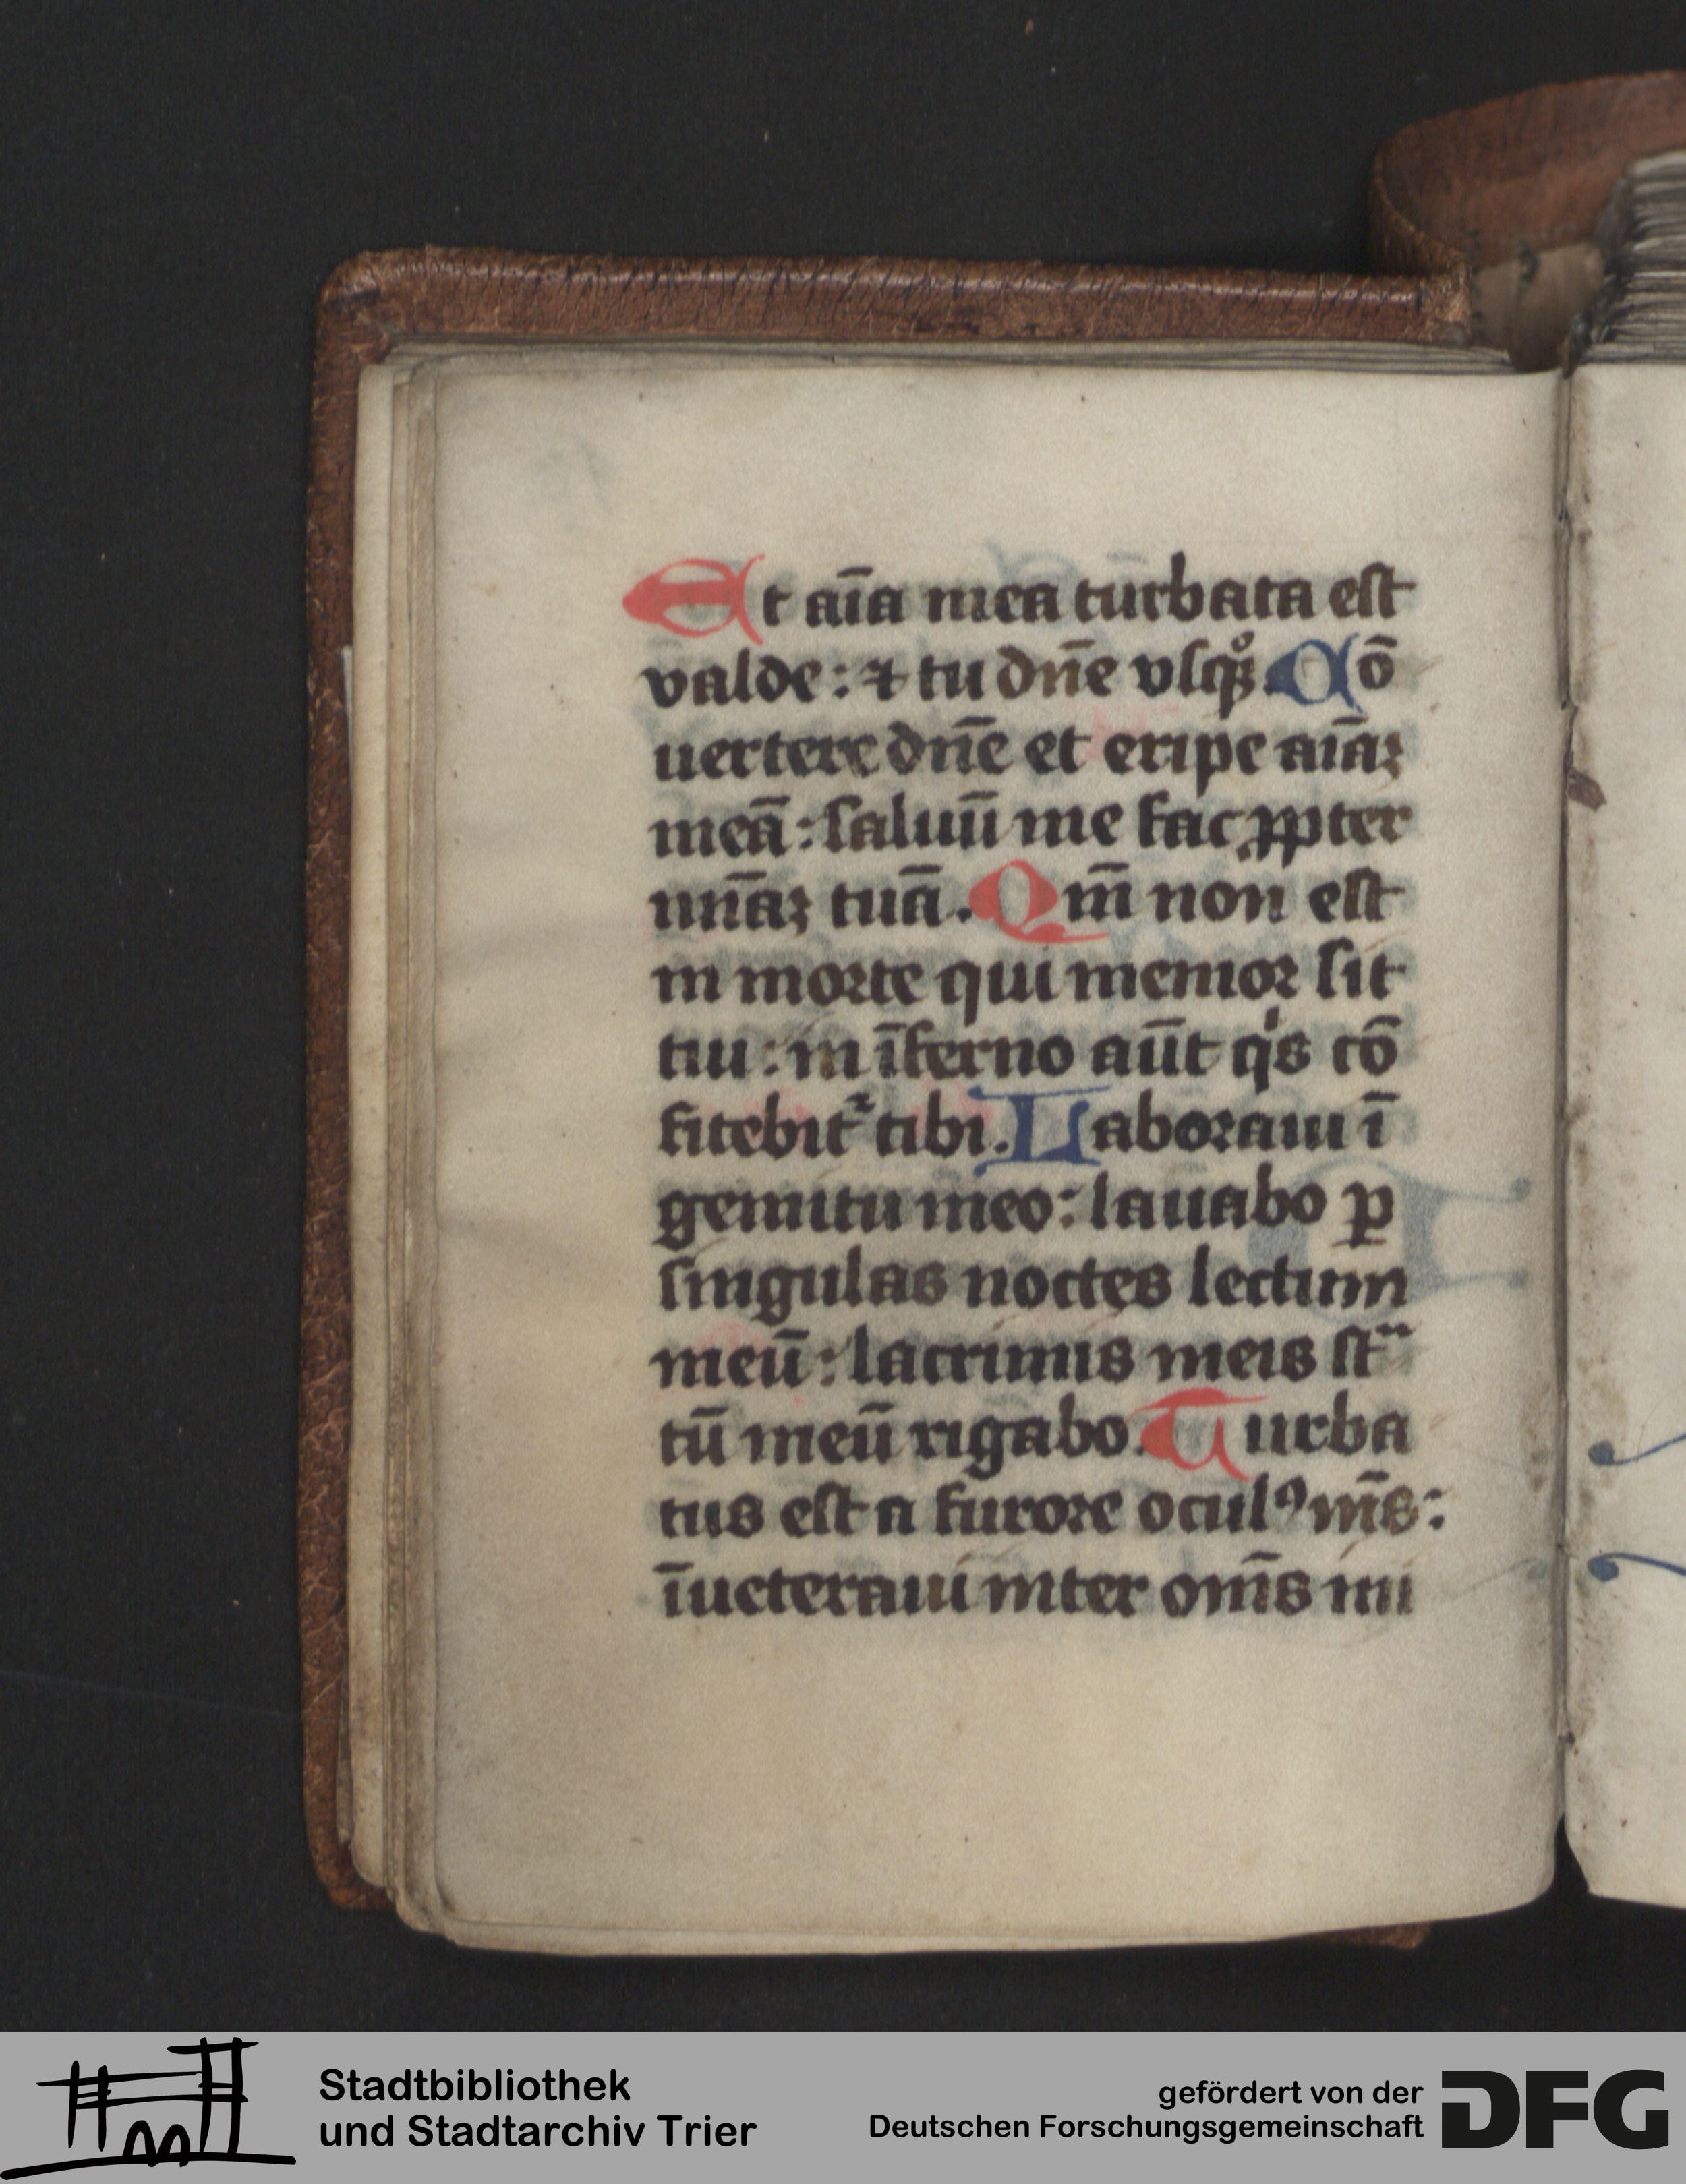 Et aīa mea turbata est
valde : ⁊ tu dn̄e vsqꝫͦ. Cō
uertere dn̄e et eripe aīaꝫ
meā : saluū me fac ꝓpter
mīaꝫ tuā. Qm̄ non est
in morte qui memor sit
tui : in īferno aūt qͥs cō
fitebit᷑ tibi. Laboraui ī
gemitu meo : lauabo ꝑ
singulas noctes lectum
meū : lacrimis meis stᷓ
tū meū rigabo. Turba
tus est a furore oculꝰ m̄s :
īueteraui inter om̄s ini
Stadtbibliothek
und Stadtarchiv Trier
gefördert von der
Deutschen Forschungsgemeinschaft
DFG